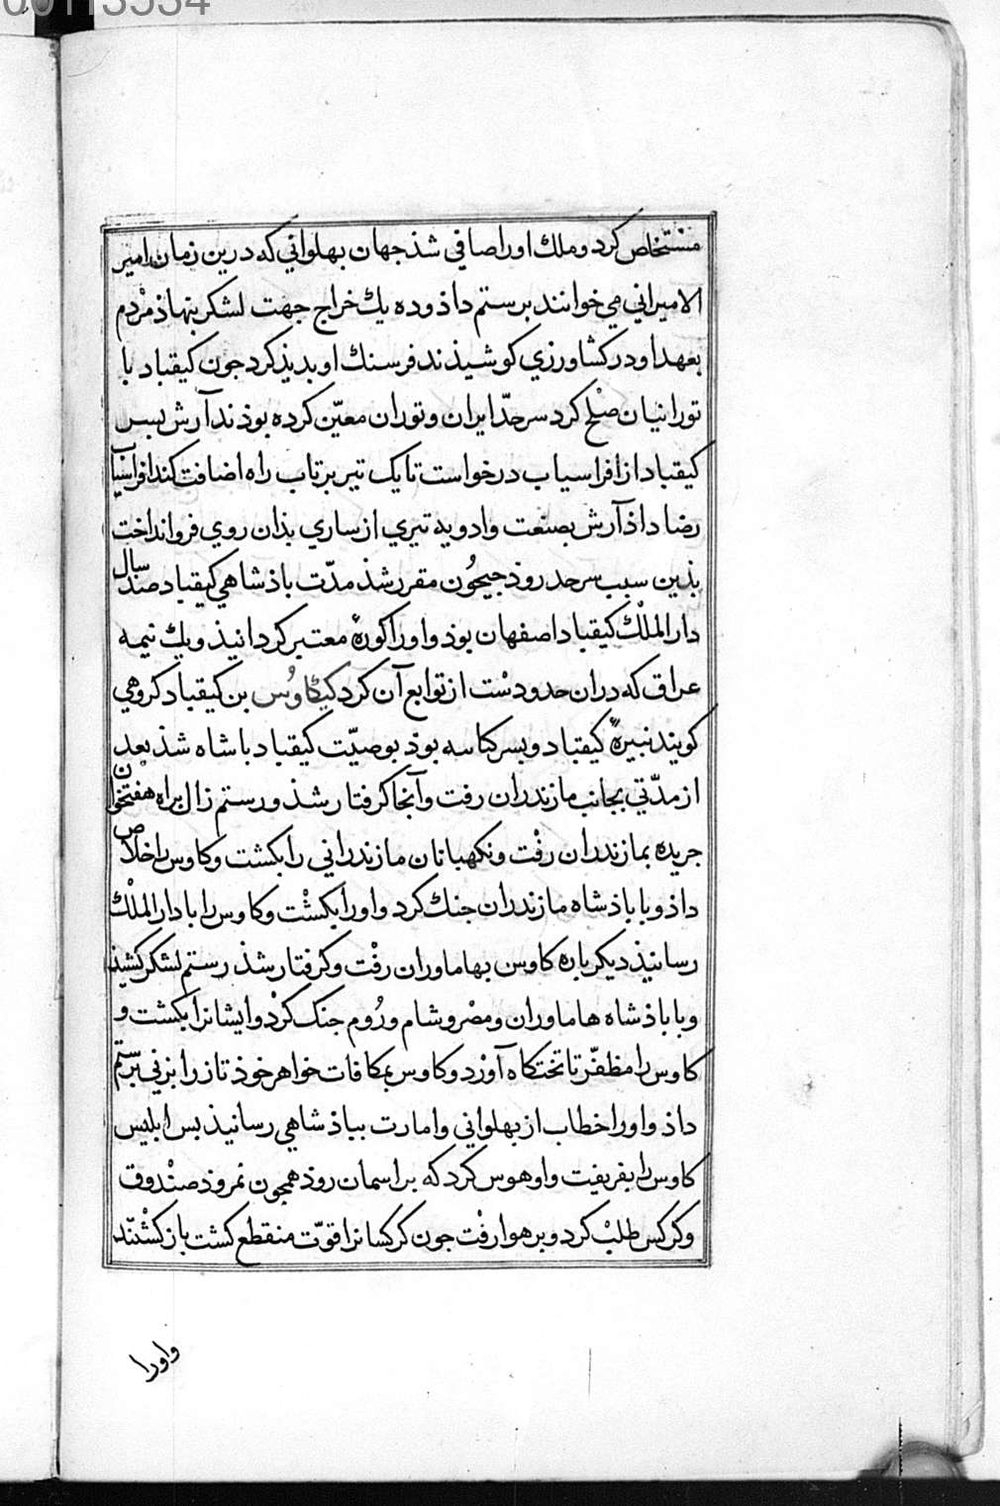 00113534
مستخلص کرد و ملك او را صافی شذ جهان بهلوانی که درین زمان امیر
الامیرانی می خوانند برستم داذ و ده یك خراج جهت لشکر بنهاذ مردم
بعهد او در کشاورزی کوشیذند فرسنك او بدیذ کرد جون کیقباد با
تورانیان صلح کرد سرحدّ ایران و توران معیّن کرده بوذند آرش بسر
کیقباد از افراسیاب درخواست تا یک تیر برتاب راه اضافت کند افراسیاب
رضا داذ آرش بصنعت و ادویه تیری از ساری بذان روی فرو انداخت
بذین سبب سرحد روذ جیحُون مقرر شذ مدّت باذشاهی کیقباد صد سال
دار الملْك کیقباد اصفهان بوذ و او را کورهٔ معتبر کردانیذ و یك نیمه
عراق که دران حدودست از توابع آن کرد کیکاوُس بن کیقباد کروهی
کویند نبیرهٔ کیقباد و بسر کتاسه بوذ بوصیّت کیقباد باشاه شذ بعد
از مدّتی بجانب مازندران رفت و آنجا کرفتار شذ و رستم زال براه هفتخوان
جریده بمازندران رفْت و نکهبانان مازندرانی را بکشت و کاوس را خلاص
داذ و با باذشاه مازندران جنك کرد و او را بکشْت و کاوس را با دار الملْك
رسانیذ دیکر باره کاوس بهاماوران رفْت و کرفتار شذ رستم لشکر کشیذ
و با باذشاه هاماوران و مصْر و شام و رُوم جنک کرْد و ایشانرا بکشت و
کاوس را مظفّر تا تختکاه آورْد و کاوس بمکافات خواهر خوذ تاز را بزنی برستم
داذ و او را خطاب از بهلوانی و امارت بباذشاهی رسانیذ بس ابلیس
کاوس را بفریفت و او هوس کرد که بر اسمان روذ همجون نمروذ صنْدوق
و کرکس طلبْ کرد و بر هوا رفْت جون کرکسانرا قوّت منقطع کشت باز کشْتند
و او را